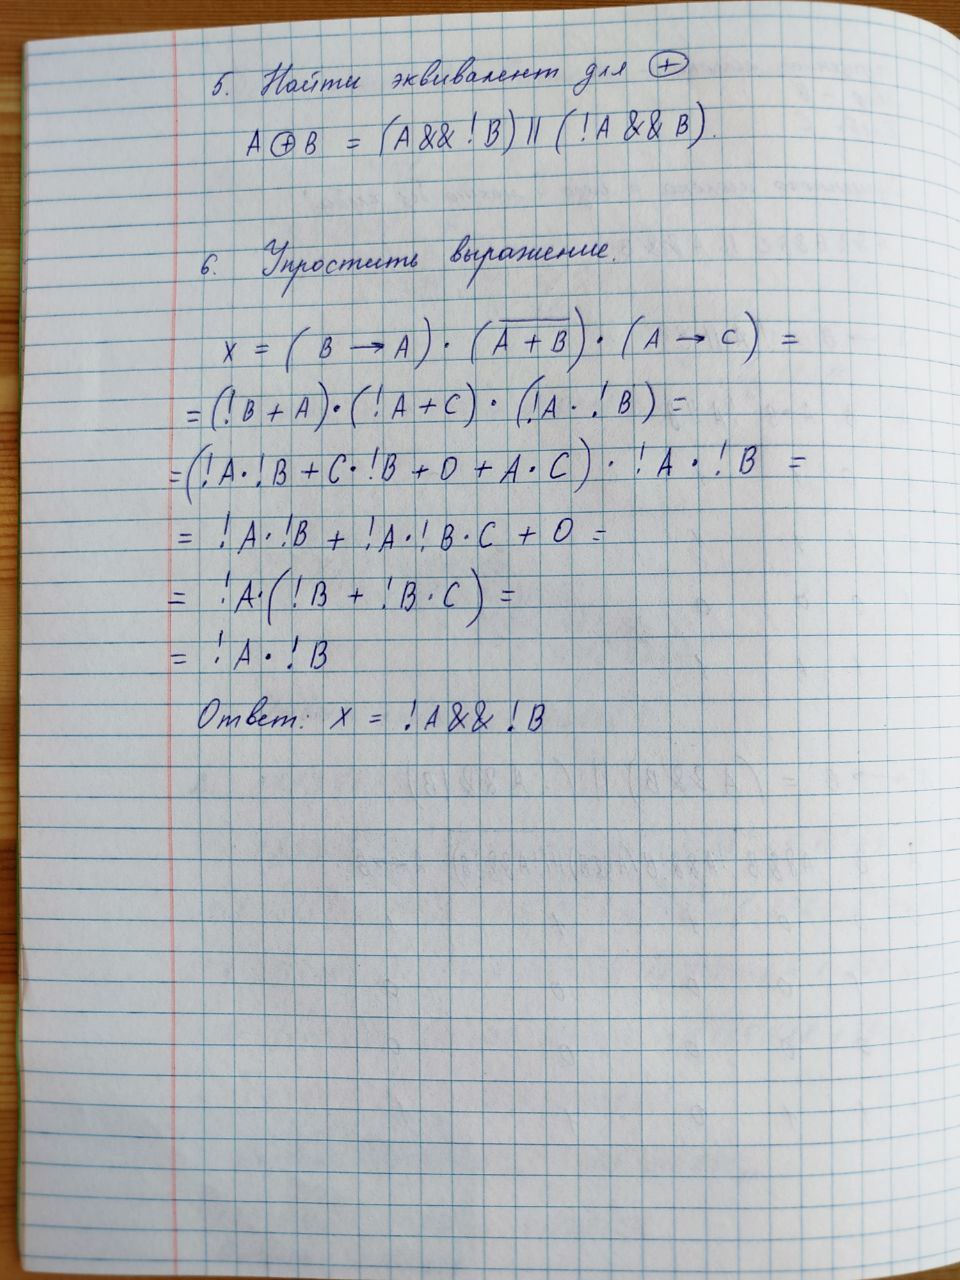 5. Найти эквивалент для ⊕
A ⊕ B = (A && !B) || (!A && B).
6. Упростить выражение.
x = (B → A) · (A̅ ̅+̅ ̅B̅) · (A → C) =
= (!B + A) · (!A + C) · (!A · !B) =
= (!A · !B + C · !B + 0 + A · C) · !A · !B =
= !A · !B + !A · !B · C + 0 =
= !A · (!B + !B · C) =
= !A · !B
Ответ: x = !A && !B